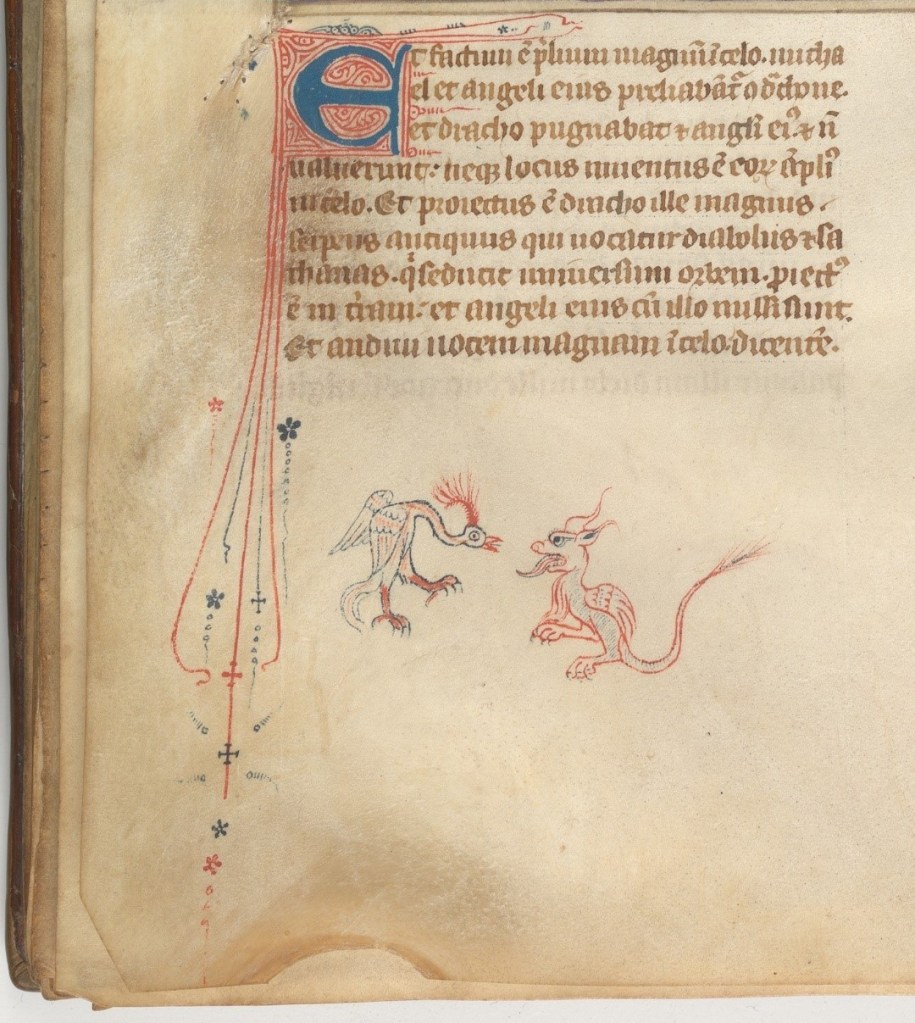 Et factum ē p̄lium magnū ī celo. micha
el et angeli eius preliabāt̄ cū d̄chone.
et dracho pugnabat ⁊ angłi eiꝰ. ⁊ n̄
ualuerunt: neqꝫ locus inuentus ē eoꝝ āpliꝰ
in celo. Et proiectus ē dracho ille magnus.
serpens antiquus qui uocatur diabolus ⁊ sa
thanas. q̇ seducit uniuersum orbem. ꝓiectꝰ
ē in t̄ram. et angeli eius cū illo missi sunt.
Et audiui uocem magnam ī celo. dicentē.